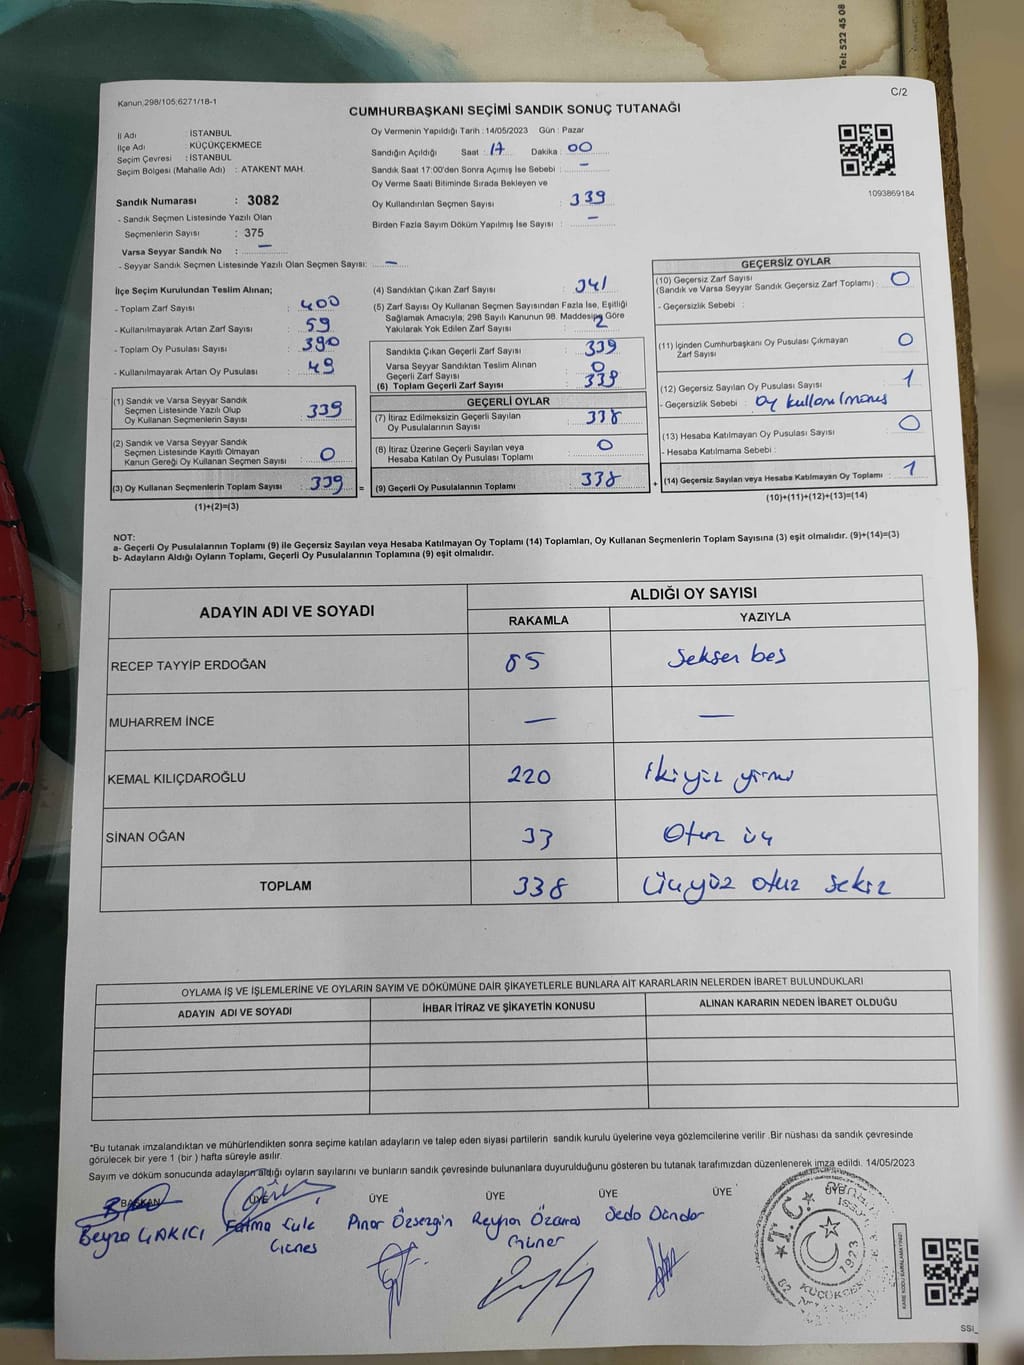 Tel: 522 45 08
Kanun;298/105;6271/18-1
C/2
CUMHURBAŞKANI SEÇİMİ SANDIK SONUÇ TUTANAĞI
İl Adı : İSTANBUL
İlçe Adı : KÜÇÜKÇEKMECE
Seçim Çevresi : İSTANBUL
Seçim Bölgesi (Mahalle Adı) : ATAKENT MAH.
Sandık Numarası : 3082
- Sandık Seçmen Listesinde Yazılı Olan
Seçmenlerin Sayısı : 375
Varsa Seyyar Sandık No : —
- Seyyar Sandık Seçmen Listesinde Yazılı Olan Seçmen Sayısı: —
Oy Vermenin Yapıldığı Tarih : 14/05/2023 Gün : Pazar
Sandığın Açıldığı Saat : 17 Dakika : 00
Sandık Saat 17:00'den Sonra Açımış İse Sebebi : —
Oy Verme Saati Bitiminde Sırada Bekleyen ve
Oy Kullandırılan Seçmen Sayısı : 339
Birden Fazla Sayım Döküm Yapılmış İse Sayısı : —
1093869184
İlçe Seçim Kurulundan Teslim Alınan;
- Toplam Zarf Sayısı : 400
- Kullanılmayarak Artan Zarf Sayısı : 59
- Toplam Oy Pusulası Sayısı : 390
- Kullanılmayarak Artan Oy Pusulası : 49
(1) Sandık ve Varsa Seyyar Sandık
Seçmen Listesinde Yazılı Olup
Oy Kullanan Seçmenlerin Sayısı : 339
(2) Sandık ve Varsa Seyyar Sandık
Seçmen Listesinde Kayıtlı Olmayan
Kanun Gereği Oy Kullanan Seçmen Sayısı : 0
(3) Oy Kullanan Seçmenlerin Toplam Sayısı : 339
(1)+(2)=(3)
(4) Sandıktan Çıkan Zarf Sayısı : 341
(5) Zarf Sayısı Oy Kullanan Seçmen Sayısından Fazla İse, Eşitliği
Sağlamak Amacıyla, 298 Sayılı Kanunun 98. Maddesine Göre
Yakılarak Yok Edilen Zarf Sayısı : 2
Sandıkta Çıkan Geçerli Zarf Sayısı : 339
Varsa Seyyar Sandıktan Teslim Alınan
Geçerli Zarf Sayısı : 0
(6) Toplam Geçerli Zarf Sayısı : 339
GEÇERLİ OYLAR
(7) İtiraz Edilmeksizin Geçerli Sayılan
Oy Pusulalarının Sayısı : 338
(8) İtiraz Üzerine Geçerli Sayılan veya
Hesaba Katılan Oy Pusulası Toplamı : 0
= (9) Geçerli Oy Pusulalarının Toplamı : 338
GEÇERSİZ OYLAR
(10) Geçersiz Zarf Sayısı
(Sandık ve Varsa Seyyar Sandık Geçersiz Zarf Toplamı) : 0
- Geçersizlik Sebebi :
(11) İçinden Cumhurbaşkanı Oy Pusulası Çıkmayan
Zarf Sayısı : 0
(12) Geçersiz Sayılan Oy Pusulası Sayısı : 1
- Geçersizlik Sebebi : oy kullanılmamış
(13) Hesaba Katılmayan Oy Pusulası Sayısı : 0
- Hesaba Katılmama Sebebi :
+ (14) Geçersiz Sayılan veya Hesaba Katılmayan Oy Toplamı : 1
(10)+(11)+(12)+(13)=(14)
NOT:
a- Geçerli Oy Pusulalarının Toplamı (9) ile Geçersiz Sayılan veya Hesaba Katılmayan Oy Toplamı (14) Toplamları, Oy Kullanan Seçmenlerin Toplam Sayısına (3) eşit olmalıdır. (9)+(14)=(3)
b- Adayların Aldığı Oyların Toplamı, Geçerli Oy Pusulalarının Toplamına (9) eşit olmalıdır.
ADAYIN ADI VE SOYADI ALDIĞI OY SAYISI
RAKAMLA YAZIYLA
RECEP TAYYİP ERDOĞAN 85 Seksen beş
MUHARREM İNCE — —
KEMAL KILIÇDAROĞLU 220 ikiyüz yirmi
SİNAN OĞAN 33 Otuz üç
TOPLAM 338 Üçyüz otuz sekiz
OYLAMA İŞ VE İŞLEMLERİNE VE OYLARIN SAYIM VE DÖKÜMÜNE DAİR ŞİKAYETLERLE BUNLARA AİT KARARLARIN NELERDEN İBARET BULUNDUKLARI
ADAYIN ADI VE SOYADI İHBAR İTİRAZ VE ŞİKAYETİN KONUSU ALINAN KARARIN NEDEN İBARET OLDUĞU
*Bu tutanak imzalandıktan ve mühürlendikten sonra seçime katılan adayların ve talep eden siyasi partilerin sandık kurulu üyelerine veya gözlemcilerine verilir .Bir nüshası da sandık çevresinde
görülecek bir yere 1 (bir ) hafta süreyle asılır.
Sayım ve döküm sonucunda adayların aldığı oyların sayılarını ve bunların sandık çevresinde bulunanlara duyurulduğunu gösteren bu tutanak tarafımızdan düzenlenerek imza edildi. 14/05/2023
BAŞKAN ÜYE ÜYE ÜYE ÜYE ÜYE ÜYE
Beyza ÇAKICI Fatma Pınar Özsezgin Reyhan Seda Dündar
Güner
T.C.
1923
KARE KODU KARALAMAYINIZ!
SSİ_